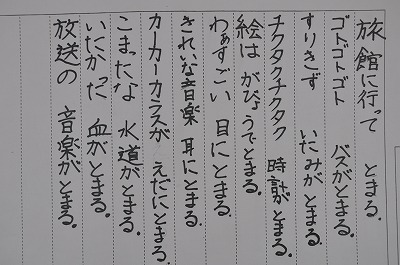 旅館に行って とまる.
ゴトゴトゴト バスがとまる.
すりきず いたみが とまる.
チクタクチクタク 時計がとまる.
絵は がびょうでとまる.
わぁすごい 目にとまる.
きれいな音楽 耳にとまる.
カーカーカラスが えだにとまる.
こまったな 水道がとまる.
いたかった 血がとまる.
放送の 音楽がとまる.